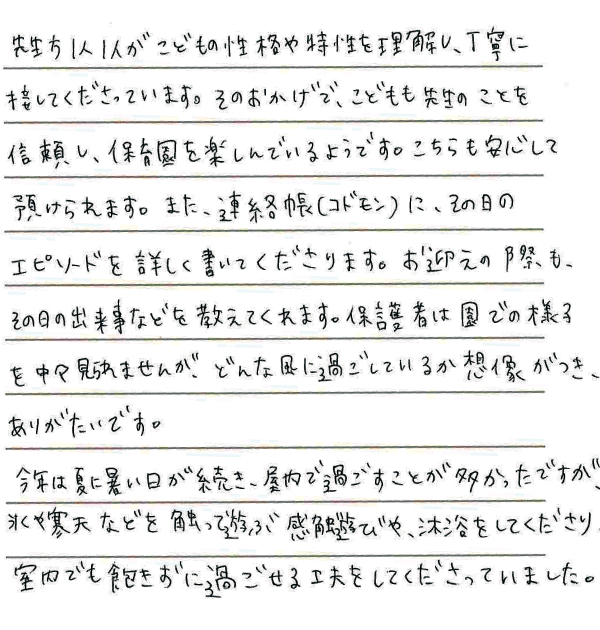 先生方1人1人がこどもの性格や特性を理解し、丁寧に
接してくださっています。そのおかげで、こどもも先生のことを
信頼し、保育園を楽しんでいるようです。こちらも安心して
預けられます。また、連絡帳(コドモン)に、その日の
エピソードを詳しく書いてくださります。お迎えの際も、
その日の出来事などを教えてくれます。保護者は園での様子
を中々見られませんが、どんな風に過ごしているか想像がつき、
ありがたいです。
今年は夏に暑い日が続き、屋内で過ごすことが多かったですが、
氷や寒天などを触って遊ぶ感触遊びや、沐浴をしてくださり、
室内でも飽きずに過ごせる工夫をしてくださっていました。